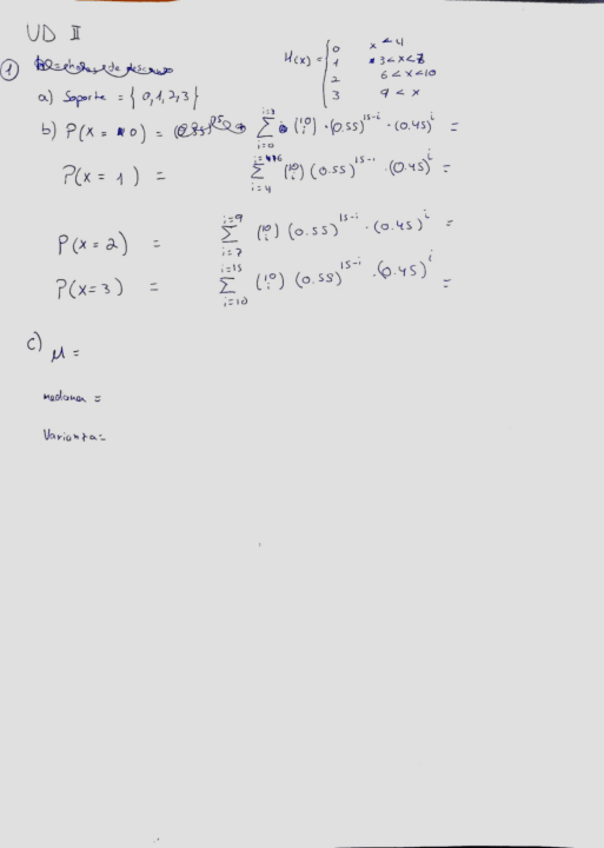 UD II
① 
H(x) = { 0 x < 4
1 3 < x < 7
2 6 < x < 10
3 9 < x
a) Soporte = { 0, 1, 2, 3 }
b) P(x = 0) = ∑ i=0 (10 i) · (0.55)^15-i · (0.45)^i =
P(x = 1) = ∑ i=4 (10 i) (0.55)^15-i · (0.45)^i =
P(x = 2) = ∑ i=7 i=9 (10 i) (0.55)^15-i · (0.45)^i =
P(x = 3) = ∑ i=10 i=15 (10 i) (0.55)^15-i · (0.45)^i =
c) μ =
mediana =
Varianza =